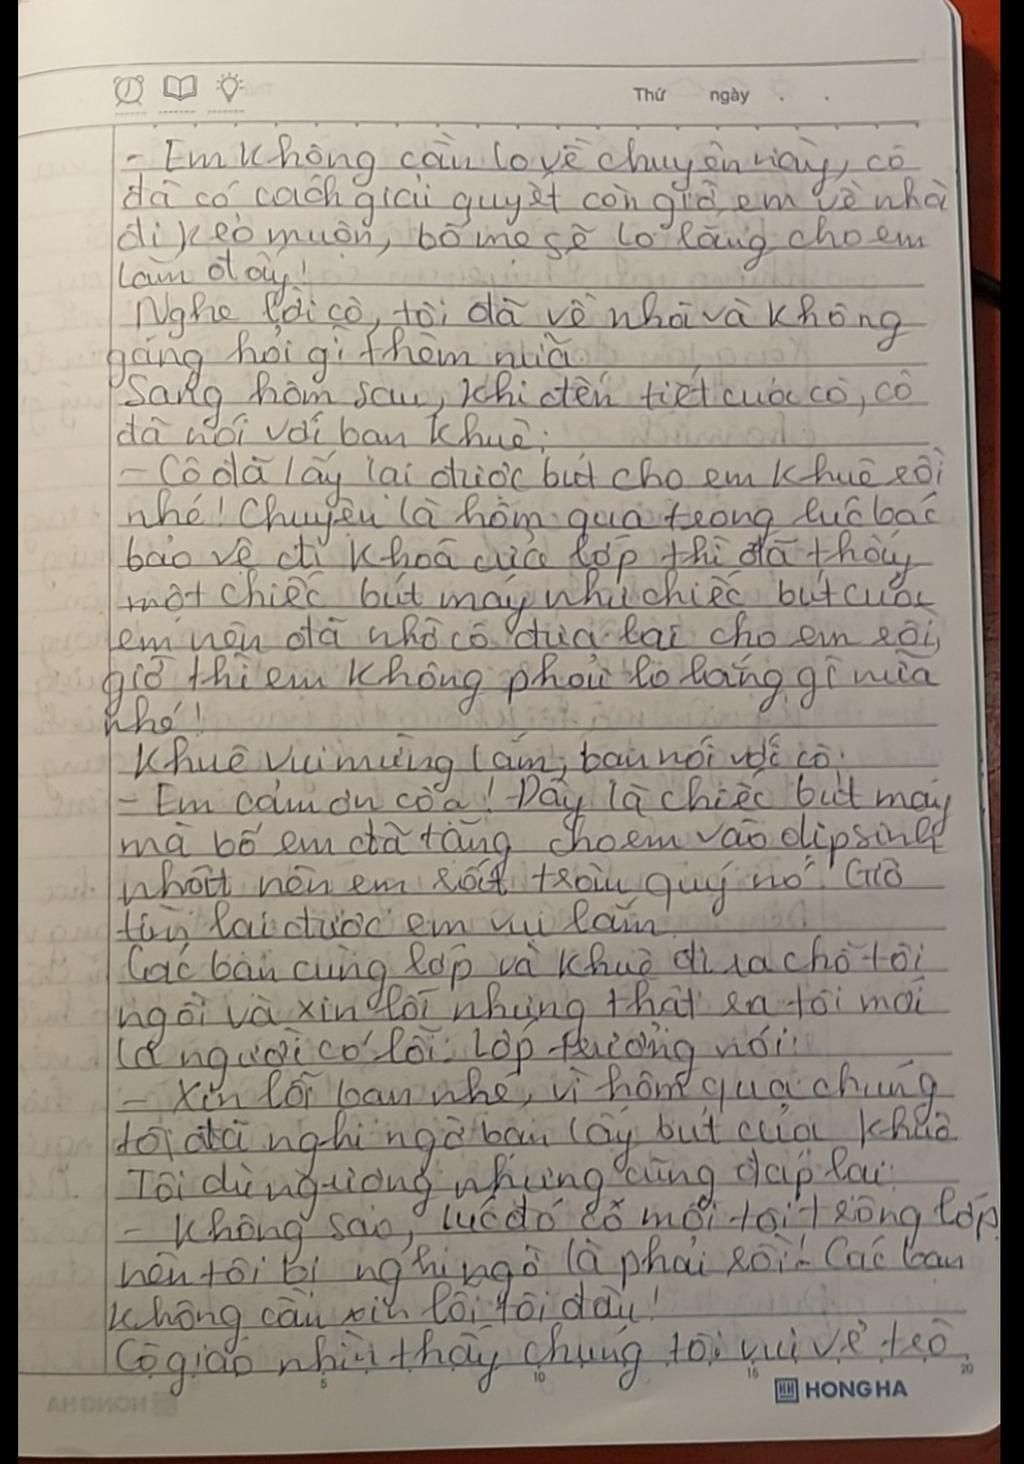 Thứ ngày . .
- Em không cần lo về chuyện này, cô
đã có cách giải quyết còn giờ em về nhà
đi kẻo muộn, bố mẹ sẽ lo lắng cho em
lắm đấy!
Nghe lời cô, tôi đã về nhà và không
gặng hỏi gì thêm nữa.
Sáng hôm sau, khi đến tiết của cô, cô
đã nói với bạn Khuê:
- Cô đã lấy lại được bút cho em Khuê rồi
nhé! Chuyện là hôm qua trong lúc bác
bảo vệ đi khoá cửa lớp thì đã thấy
một chiếc bút máy như chiếc bút của
em nên đã nhờ cô đưa lại cho em rồi,
giờ thì em không phải lo lắng gì nữa
nhé!
Khuê vui mừng lắm, bạn nói với cô:
- Em cảm ơn cô ạ! Đây là chiếc bút máy
mà bố em đã tặng cho em vào dịp sinh
nhật nên em rất trân quý nó. Giờ
tìm lại được em vui lắm.
Các bạn cùng lớp và Khuê đi ra chỗ tôi
ngồi và xin lỗi nhưng thật ra tôi mới
là người có lỗi. Lớp trưởng nói:
- Xin lỗi bạn nhé, vì hôm qua chúng
tôi đã nghi ngờ bạn lấy bút của Khuê.
Tôi dù ngượng nhưng cũng đáp lại:
- Không sao, lúc đó có mỗi tôi trong lớp
nên tôi bị nghi ngờ là phải rồi! Các bạn
không cần xin lỗi tôi đâu!
Cô giáo nhìn thấy chúng tôi vui vẻ trò
5 10 15 20
HONG HA